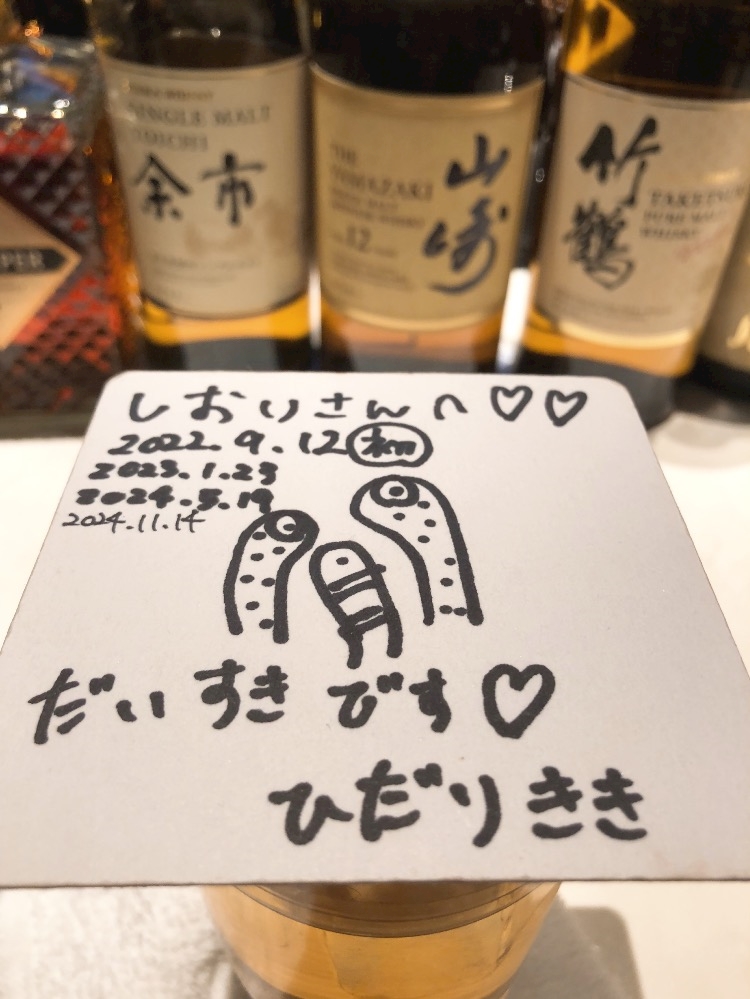 SINGLE MALT
余市
THE
YAMAZAKI
12
山崎
竹鶴
PURE MALT
WHISKY
PER
しおりさんへ♡♡
2022.9.12
2023.1.23
2024.5.19
2024.11.14
だいすきです♡
ひだりきき